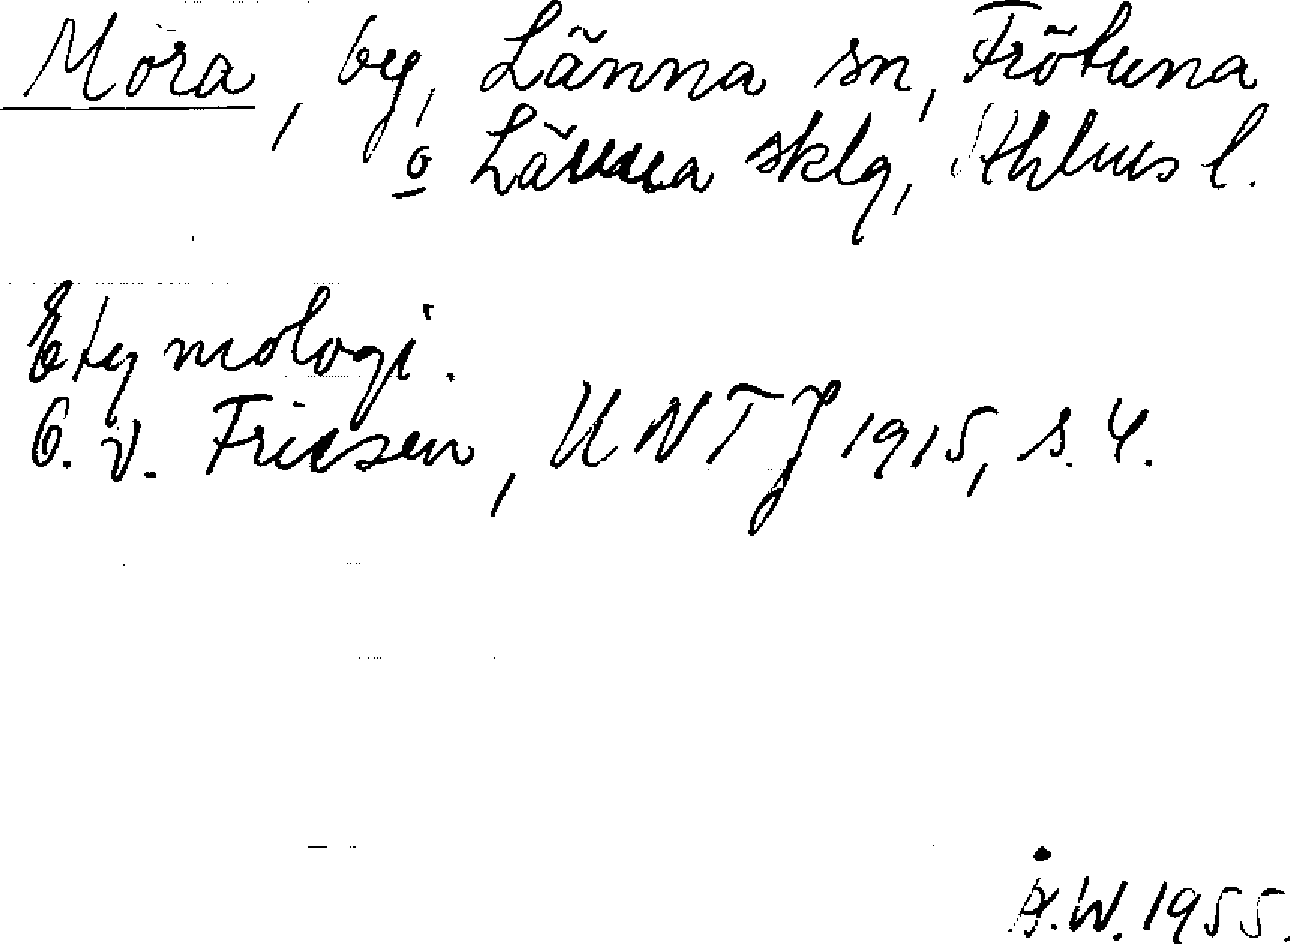 Mora, by, Länna sn, Frötuna
o Länna sklg, Sthlms l.
Etymologi.
O. v. Friesen, UNTJ 1915, s. 4.
Å.W. 1955.